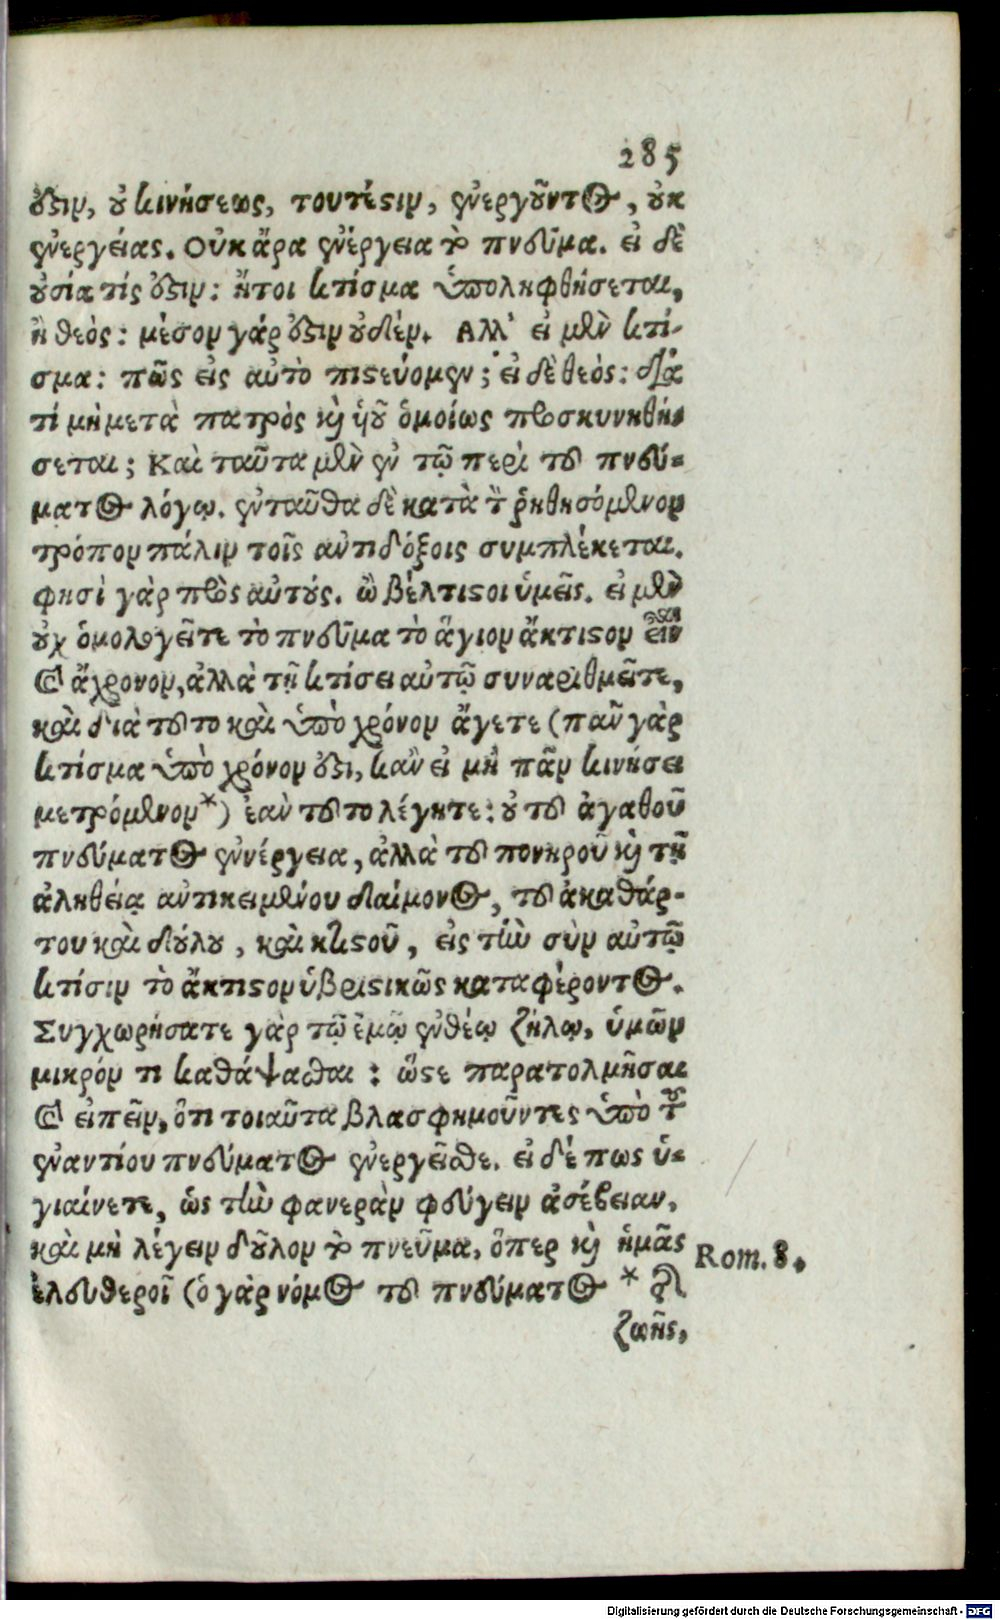 285
ἐστιν, οὐ κινήσεως, τουτέστιν, ἐνεργοῦντος, οὐκ
ἐνεργείας. Οὐκ ἄρα ἐνέργεια τὸ πνεῦμα. εἰ δὲ
οὐσία τίς ἐστιν: ἤτοι κτίσμα ὑποληφθήσεται,
ἢ θεὸς: μέσον γάρ ἐστιν οὐδέν. Ἀλλ' εἰ μὲν κτί-
σμα: πῶς εἰς αὐτὸ πιστεύομεν; εἰ δὲ θεὸς: διὰ
τί μὴ μετὰ πατρὸς καὶ υἱοῦ ὁμοίως προσκυνηθή-
σεται; Καὶ ταῦτα μὲν ἐν τῷ περὶ τοῦ πνεύ-
ματος λόγῳ. ἐνταῦθα δὲ κατὰ τὸν ῥηθησόμενον
τρόπον πάλιν τοῖς ἀντιδόξοις συμπλέκεται.
φησὶ γὰρ πρὸς αὐτούς. ὦ βέλτιστοι ὑμεῖς. εἰ μὲν
οὐχ ὁμολογεῖτε τὸ πνεῦμα τὸ ἅγιον ἄκτιστον εἶναι
καὶ ἄχρονον, ἀλλὰ τῇ κτίσει αὐτῷ συναριθμεῖτε,
καὶ διὰ τοῦτο καὶ ὑπὸ χρόνον ἄγετε (πᾶν γὰρ
κτίσμα ὑπὸ χρόνον ἐστι, κἂν εἰ μὴ πᾶν κινήσει
μετρόμενον*) ἐὰν τοῦτο λέγητε: οὐ τοῦ ἀγαθοῦ
πνεύματος ἐνέργεια, ἀλλὰ τοῦ πονηροῦ καὶ τῇ
ἀληθείᾳ ἀντικειμένου δαίμονος, τοῦ ἀκαθάρ-
του καὶ δούλου, καὶ κτιστοῦ, εἰς τὴν σὺν αὐτῷ
κτίσιν τὸ ἄκτιστον ὑβριστικῶς καταφέροντος.
Συγχωρήσατε γὰρ τῷ ἐμῷ ἐνθέῳ ζήλῳ, ὑμῶν
μικρόν τι καθάψασθαι: ὥστε παρατολμῆσαι
καὶ εἰπεῖν, ὅτι τοιαῦτα βλασφημοῦντες ὑπὸ τοῦ
ἐναντίου πνεύματος ἐνεργεῖσθε. εἰ δέ πως ὑ-
γιαίνετε, ὡς τὴν φανερὰν φεύγειν ἀσέβειαν,
καὶ μὴ λέγειν δοῦλον τὸ πνεῦμα, ὅπερ καὶ ἡμᾶς
ἐλευθεροῖ (ὁ γὰρ νόμος τοῦ πνεύματος * τῆς
ζωῆς,
Rom. 8.
Digitalisierung gefördert durch die Deutsche Forschungsgemeinschaft - DFG